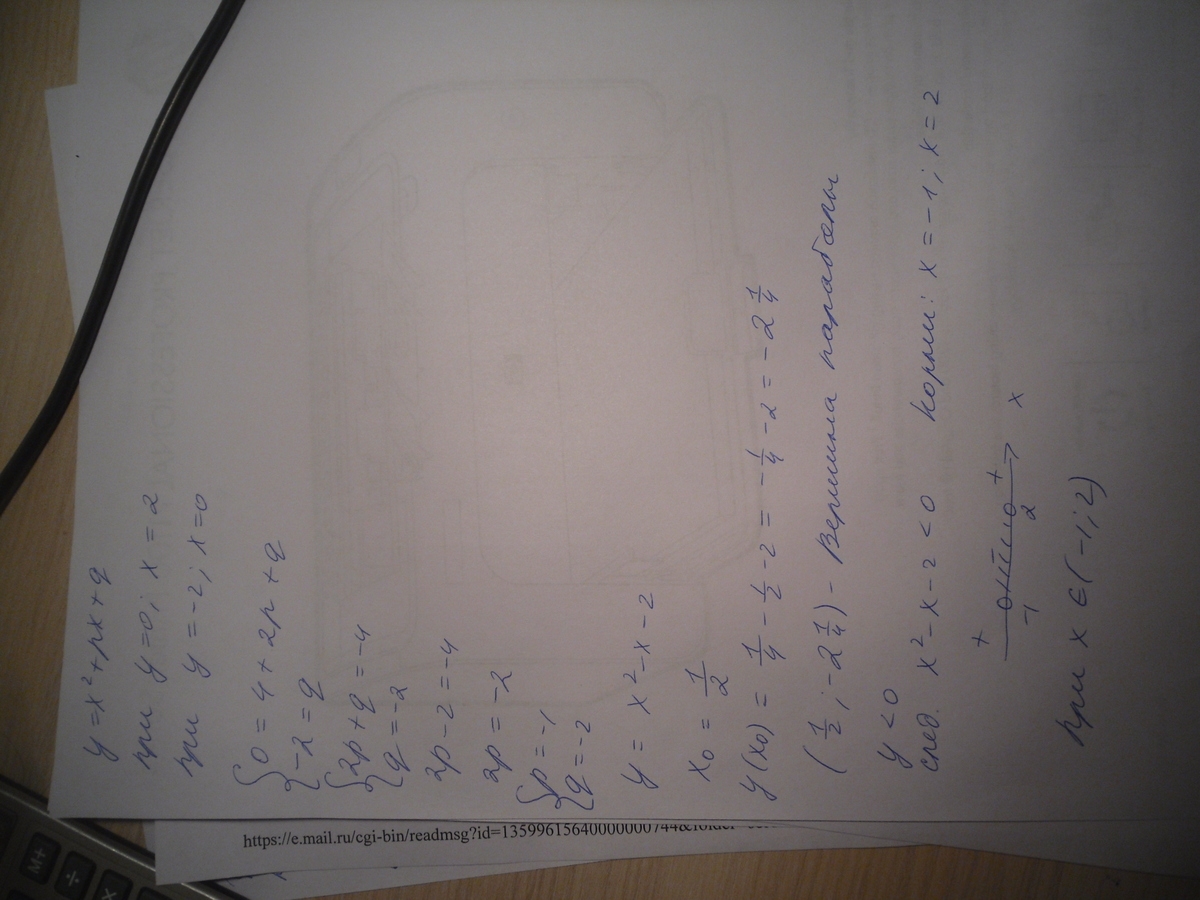 y = x² + px + q
при y = 0; x = 2
при y = -2; x = 0
{ 0 = 4 + 2p + q
{ -2 = q
{ 2p + q = -4
{ q = -2
2p - 2 = -4
2p = -2
{ p = -1
{ q = -2
y = x² - x - 2
x₀ = 1/2
y(x₀) = 1/4 - 1/2 - 2 = -1/4 - 2 = -2 1/4
(1/2; -2 1/4) - Вершина параболы
y < 0
след. x² - x - 2 < 0 Корни: x = -1; x = 2
+ - + x
-1 2
при x ∈ (-1; 2)
https://e.mail.ru/cgi-bin/readmsg?id=13599615640000000744&folder
M+
÷
×